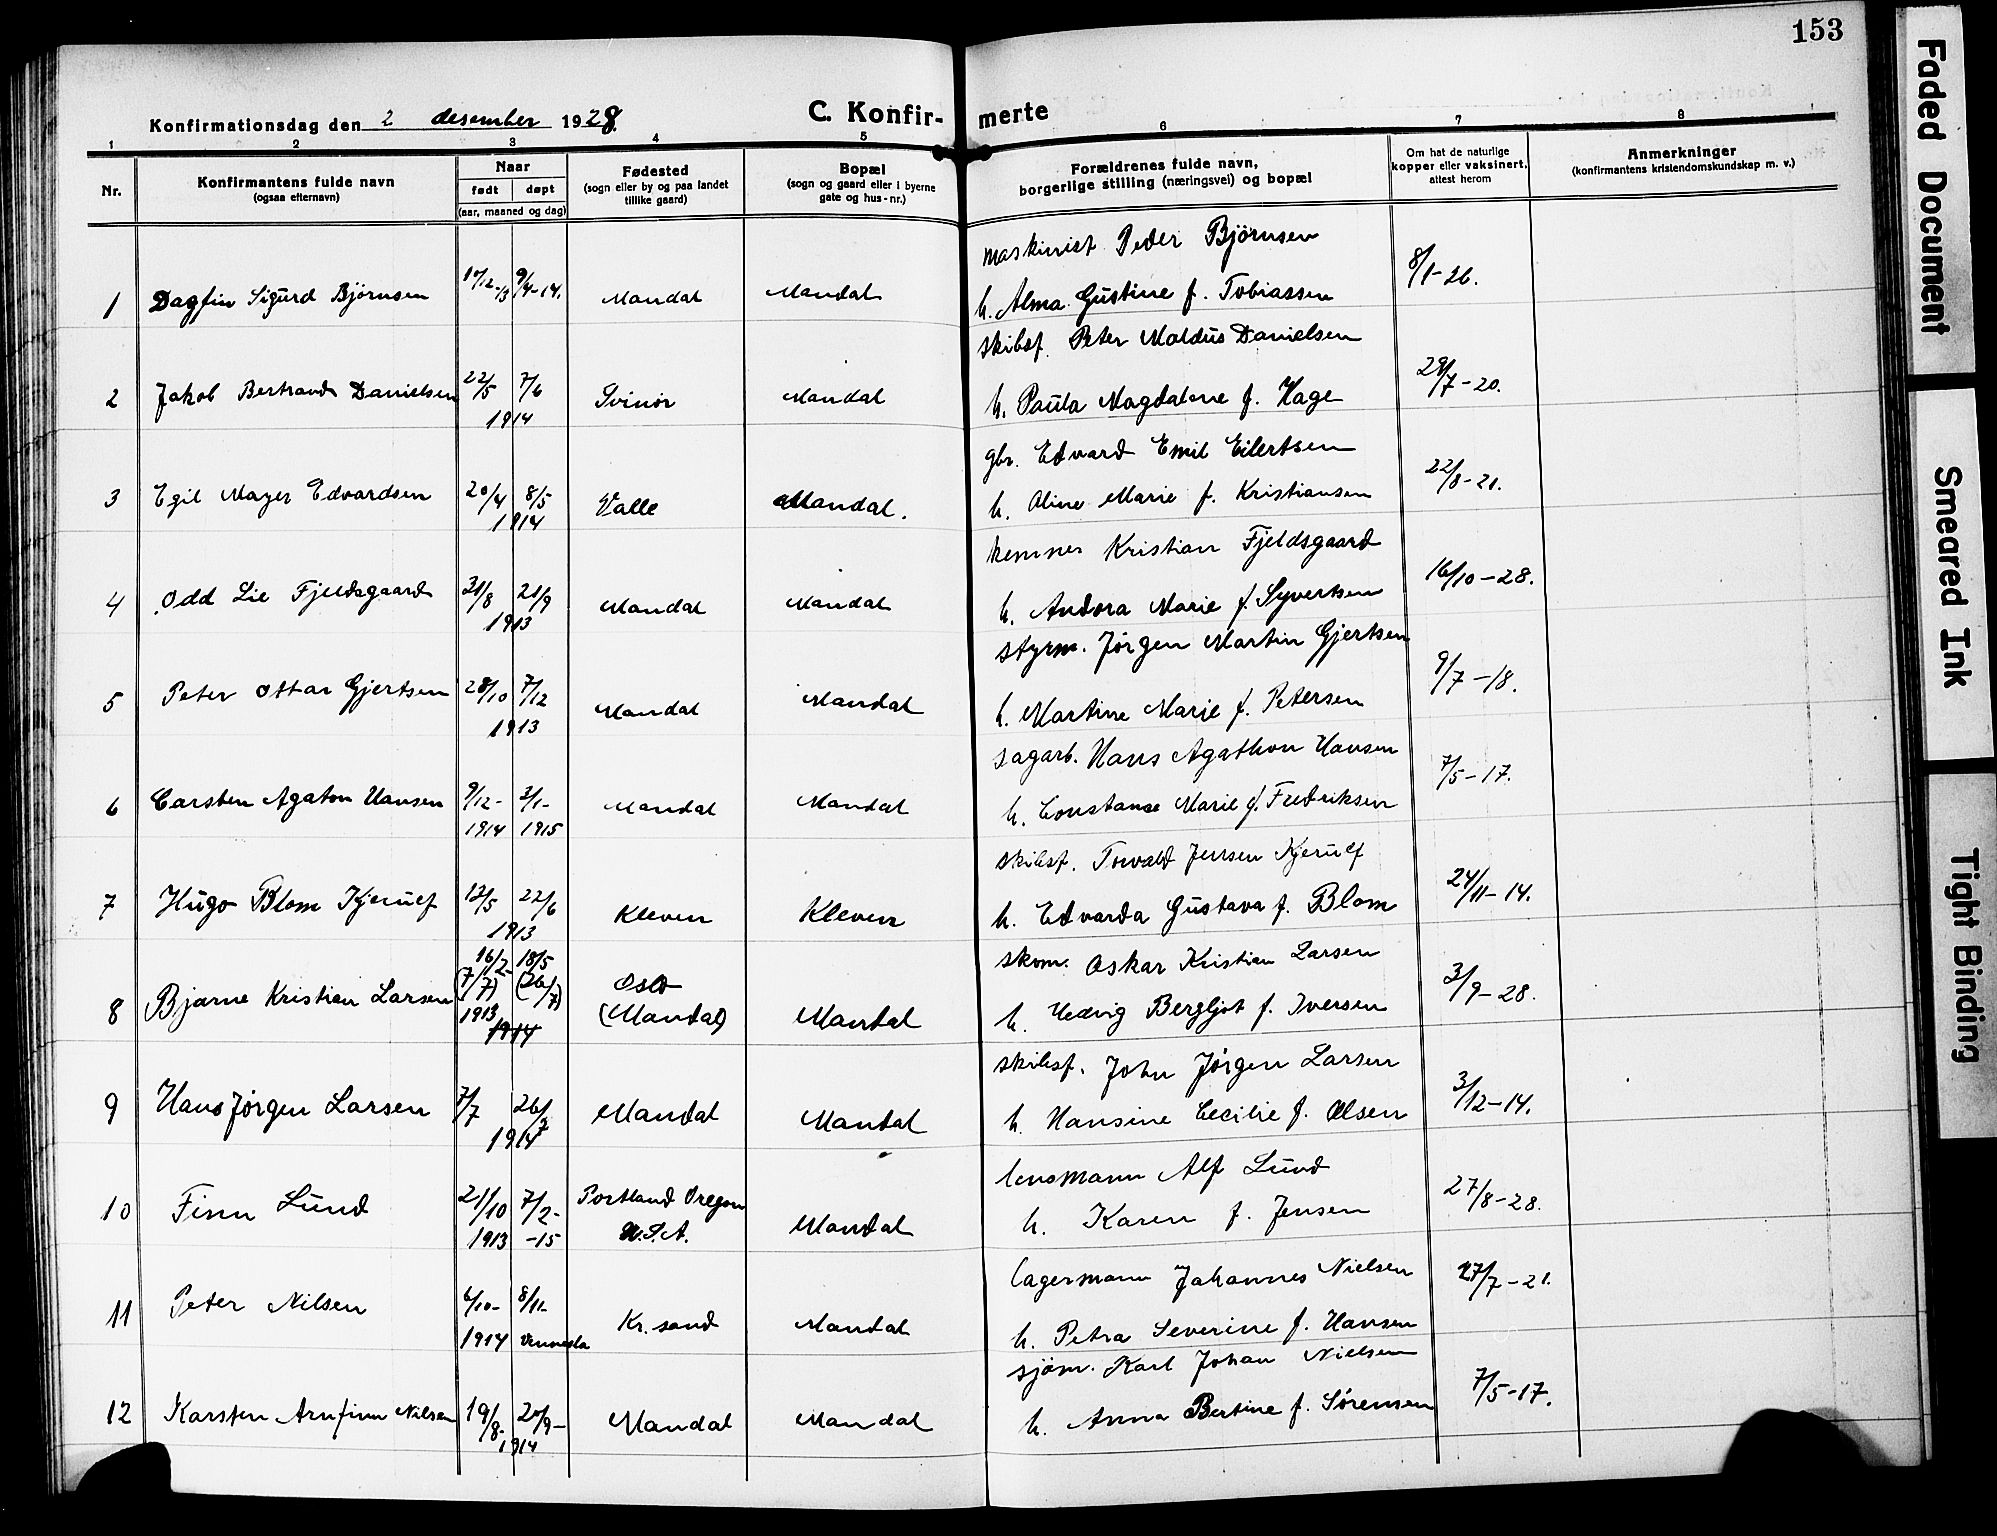 153
Faded Document
Smeared Ink
Tight Binding
Konfirmationsdag den 2 desember 1928.
C. Konfir- merte
1 2 3 4 5 6 7 8
Nr.
Konfirmantens fulde navn
(ogsaa efternavn)
Naar
født døpt
(aar, maaned og dag)
Fødested
(sogn eller by og paa landet
tillike gaard)
Bopæl
(sogn og gaard eller i byerne
gate og hus-nr.)
Forældrenes fulde navn,
borgerlige stilling (næringsvei) og bopæl
Om hat de naturlige
kopper eller vaksinert,
attest herom
Anmerkninger
(konfirmantens kristendomskundskap m. v.)
maskinist Peder Björnsen
1 Dagfin Sigurd Björnsen 10/12-13 9/4-14. Mandal Mandal h. Alma Gustine f. Tobiassen 8/1-26.
skibsf. Peter Maldus Danielsen
2 Jakob Bertrand Danielsen 22/5 7/6 Svinör Mandal h. Paula Magdalene f. Hage 29/7-20.
1914
gbr. Edvard Emil Eilertsen
3 Egil Mayer Edvardsen 20/4 8/5 Valle Mandal. h. Aline Marie f. Kristiansen 22/8-21.
1914
kemner Kristian Fjeldsgaard
4 Odd Lie Fjeldsgaard 31/8 21/9 Mandal Mandal h. Andora Marie f. Syvertsen 16/10-28.
1913
styrm. Jørgen Martin Gjertsen
5 Peter Ottar Gjertsen 28/10 7/12 Mandal Mandal h. Martine Marie f. Petersen 9/7-18.
1913
sagarb. Hans Agathon Hansen
6 Carsten Agaton Hansen 9/12- 3/1- Mandal Mandal h. Constanse Marie f. Fredriksen 7/5-17.
1914 1915
skibsf. Torvald Jensen Kjerulf
7 Hugo Blom Kjerulf 13/5 22/6 Kleven Kleven h. Edvarda Gustava f. Blom 24/11-14.
1913
16/2- 18/5
skom. Oskar Kristian Larsen
8 Bjarne Kristian Larsen (7/7) (26/7) Oslo (Mandal) Mandal h. Hedvig Bergljot f. Iversen 3/9-28.
1913
1914
skibsf. John Jørgen Larsen
9 Hans Jørgen Larsen 7/7 26/7 Mandal Mandal h. Hansine Cecilie f. Olsen 3/12-14.
1914
lensmann Alf Lund
10 Finn Lund 21/10 7/2- Portland Oregon Mandal h. Karen f. Jensen 27/8-28.
1913 -15 U.S.A.
lagermann Johannes Nielsen
11 Peter Nilsen 6/10- 8/11- Kr. sand Mandal h. Petra Severine f. Hansen 27/7-21.
1914 Vennesla
sjöm. Karl Johan Nielsen
12 Karsten Arnfinn Nilsen 19/8- 20/9- Mandal Mandal h. Anna Bertine f. Sörensen 7/5-17.
1914